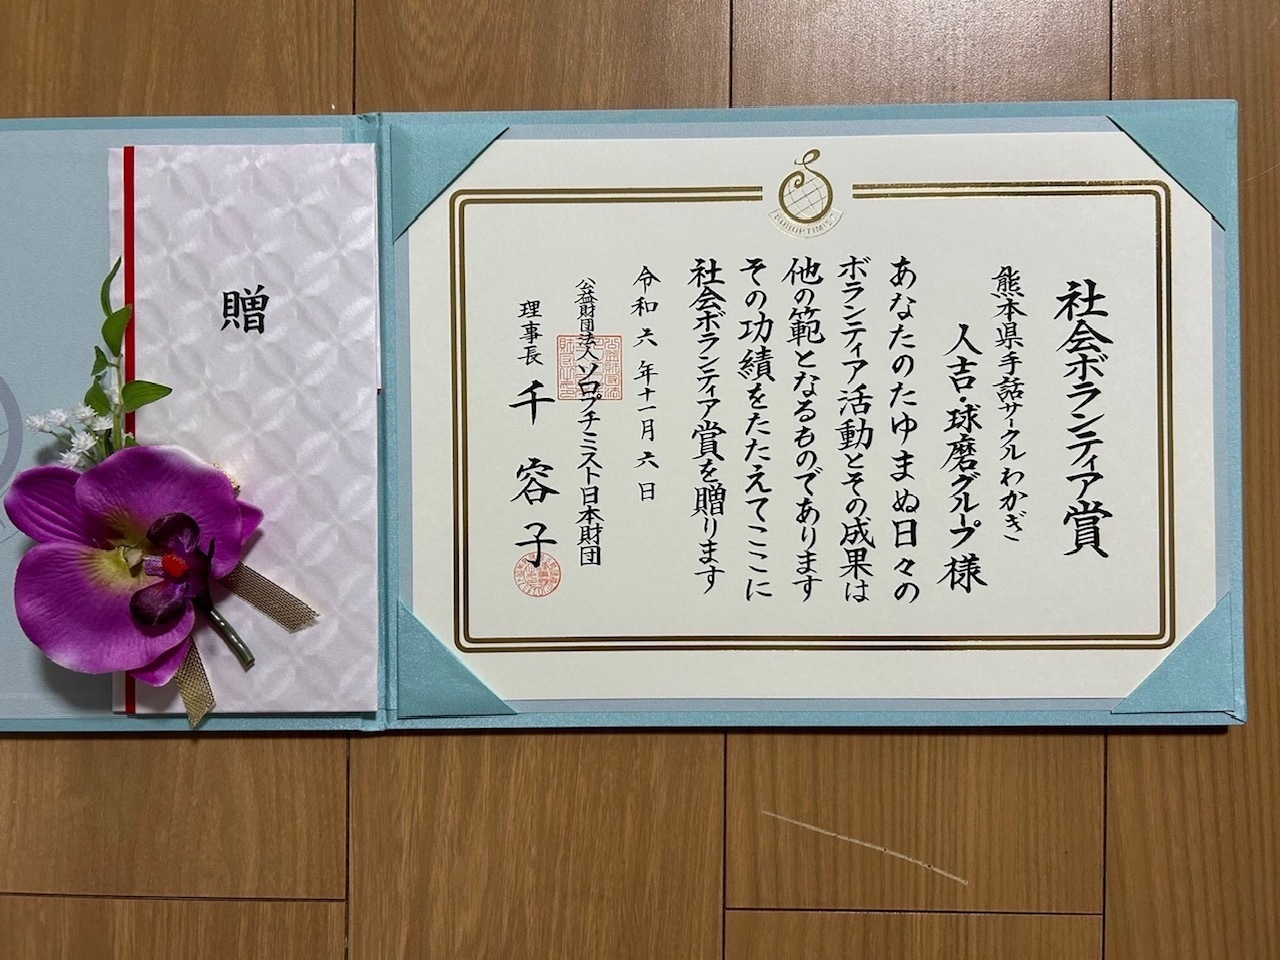 SOROPTIMIST
社会ボランティア賞
熊本県手話サークルわかぎ
人吉・球磨グループ様
あなたのたゆまぬ日々の
ボランティア活動とその成果は
他の範となるものであります
その功績をたたえてここに
社会ボランティア賞を贈ります
令和六年十一月六日
公益財団法人ソロプチミスト日本財団
理事長 千 容子
贈